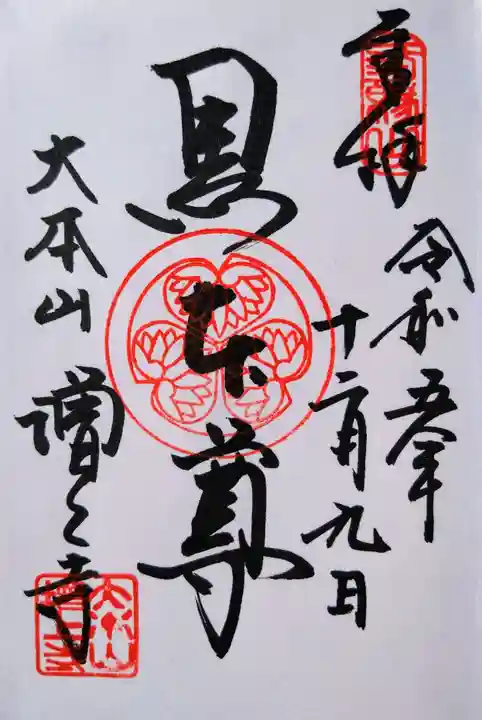 令和五年
十二月九日
黒本尊
大本山
増上寺